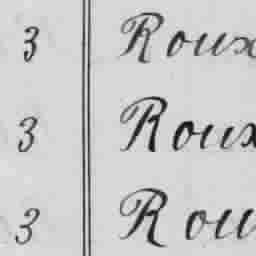 3 Roux
3 Roux
3 Rou